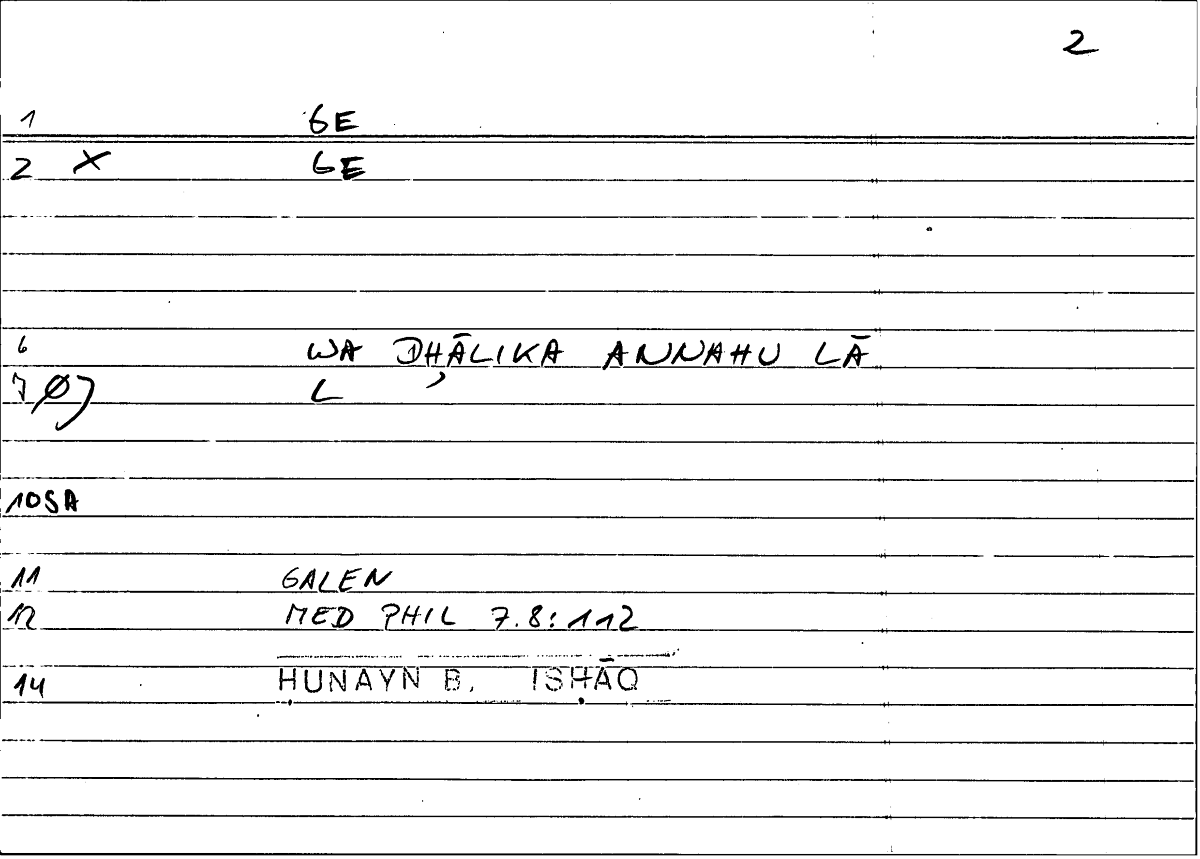 2
1 GE
2 X GE
6 WA DHĀLIKA ANNAHU LĀ
7 Ø) L
10SA
11 GALEN
12 MED PHIL 7.8:112
14 ḤUNAYN B. ISḤĀQ